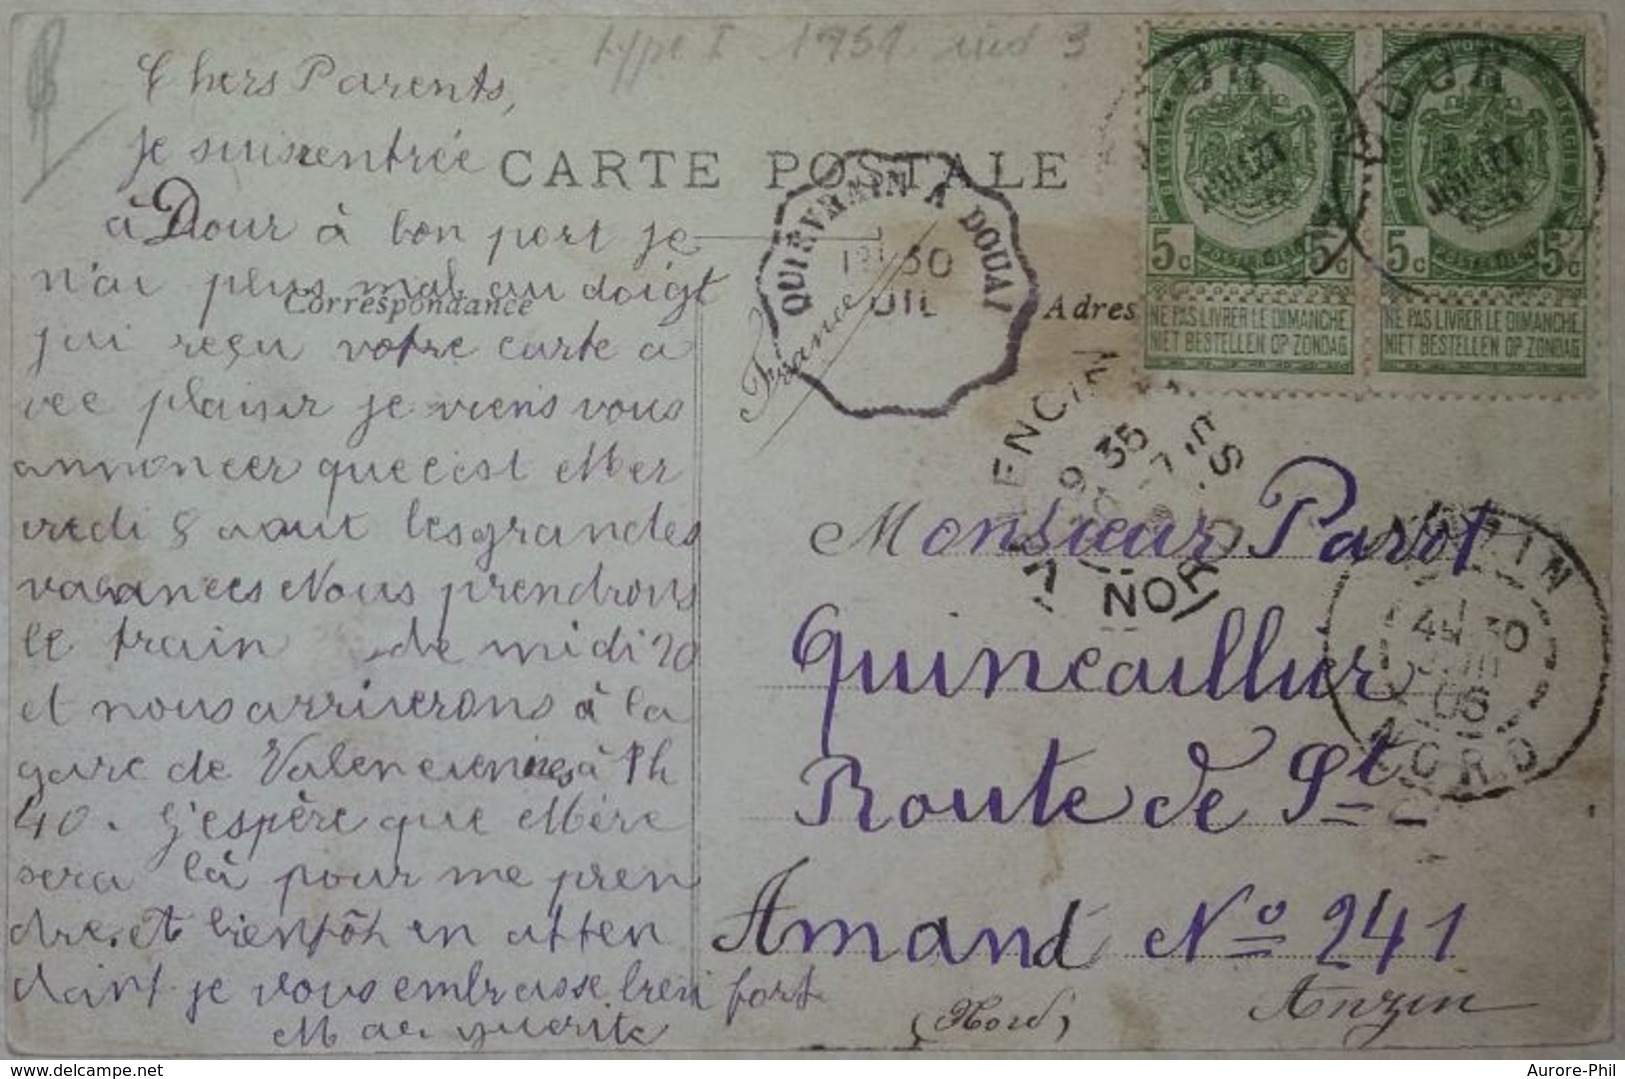 type I 1951
Chers Parents,
je suis rentrée
à Dour à bon port je
n'ai plus mal au doigt
j'ai reçu votre carte a
vec plaisir je viens vous
annoncer que c'est Mer
credi 8 aout les grandes
vacances Nous prendrons
le train de midi 20
et nous arriverons à la
gare de Valenciennes à 1h
40. J'espère que Mère
sera là pour me pren
dre. Et bientôt en atten
dant je vous embrasse bien fort
Marguerite
CARTE POSTALE
Correspondance
Adres
France
QUIEVRAIN A DOUAI
DOUR
JUILLET
DOUR
JUILLET
BELGIE
5c POSTERIJEN 5c
5c POSTERIJEN 5c
NE PAS LIVRER LE DIMANCHE
NIET BESTELLEN OP ZONDAG
NE PAS LIVRER LE DIMANCHE
NIET BESTELLEN OP ZONDAG
VALENCIENNES
9 35
NORD
ANZIN
06
NORD
Monsieur Parot
Quincaillier
Route de St
Amand No 241
(Nord) Anzin
delcampe.net
Aurore-Phil